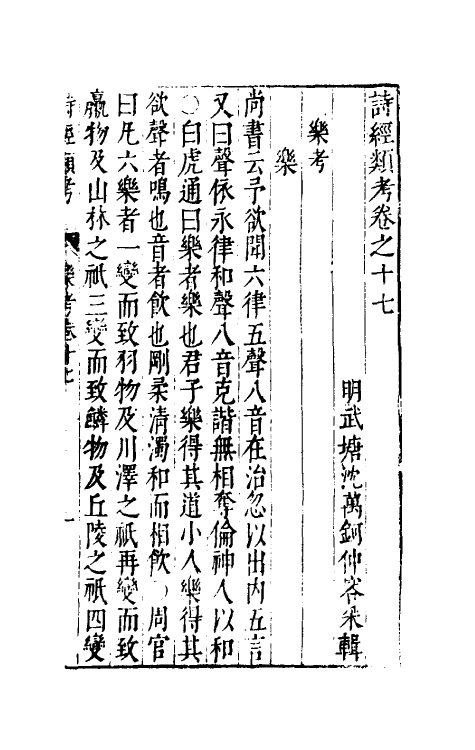 詩經類考卷之十七
明武塘沈萬鈳仲容朱輯
樂考
樂
尚書云予欲聞六律五聲八音在治忽以出內五言
又曰聲依永律和聲八音克諧無相奪倫神人以和
○白虎通曰樂者樂也君子樂得其道小人樂得其
欲聲者鳴也音者飲也剛柔清濁和而相飲○周官
曰凡六樂者一變而致羽物及川澤之祇再變而致
臝物及山林之祇三變而致鱗物及丘陵之祇四變
詩經類考 樂考卷十七 一